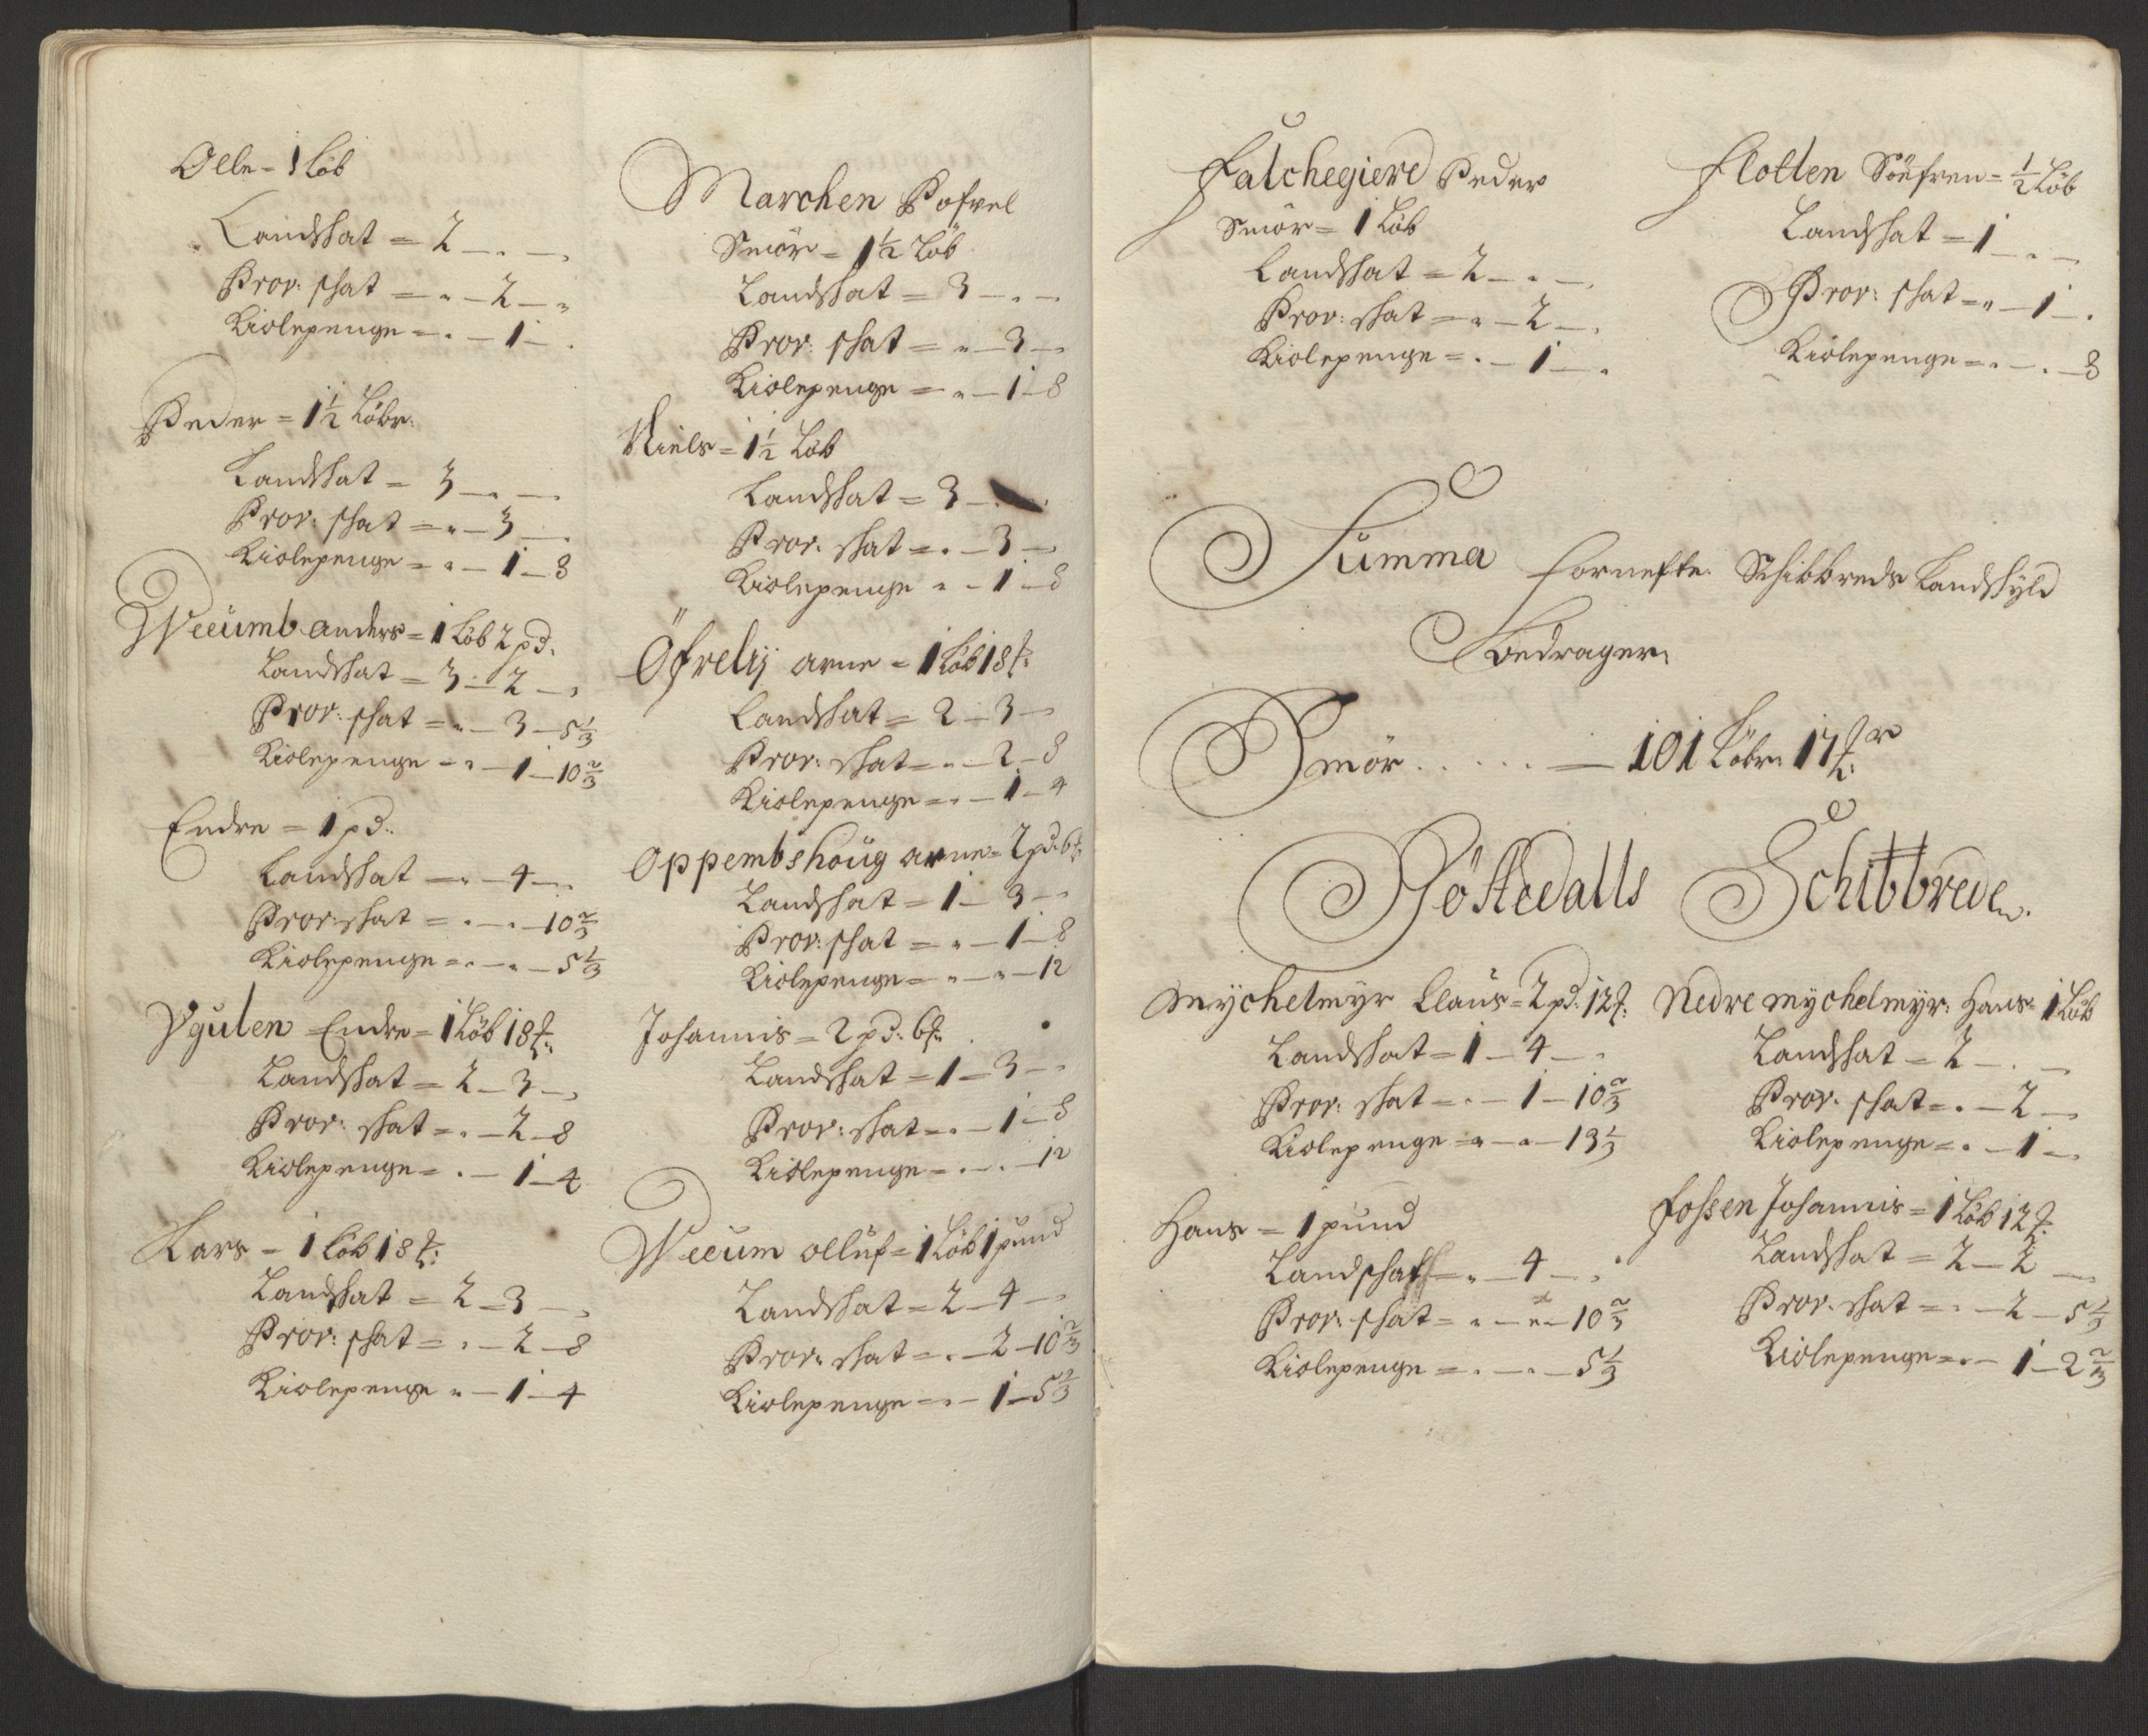 Olle = 1 Löb
Landskat = 2 – . –
Prov: skat = „ – 2 – „
Kiolepenge = . – 1 – .
Peder = 1½ Löbe:
Landskat = 3 – . –
Prov: skat = „ – 3 – .
Kiolepenge = „ – 1 – 8
Weeumb anders = 1 Löb 2 pd:
Landskat = 3 – 2 – „
Prov: skat = „ – 3 – 5⅓
Kiolepenge = „ – 1 – 10⅔
Endre = 1 pd:
Landskat = „ – 4 – „
Prov: skat = . – . – 10⅔
Kiolepenge = . – „ – 5⅓
Ygulen Endre = 1 Löb 18 ℔:
Landskat = 2 – 3 – „
Prov: skat = . – 2 – 8
Kiolepenge = . – 1 – 4
Lars = 1 Löb 18 ℔:
Landskat = 2 – 3 – „
Prov: skat = . – 2 – 8
Kiolepenge „ – 1 – 4
Marchen Pofvel
Smör = 1½ Löb
Landskat = 3 – . –
Prov: skat = „ – 3 –
Kiolepenge = „ – 1 – 8
Niels = 1½ Löb
Landskat = 3 –
Prov: skat = . – 3 –
Kiolepenge „ – 1 – 8
Öfrelij arne = 1 Löb 18 ℔:
Landskat = 2 – 3 –
Prov: skat = . – 2 – 8
Kiolepenge = . – 1 – 4
Oppembshoug arne = 2 pd: 6 ℔:
Landskat = 1 – 3 –
Prov: skat = „ – 1 – 8
Kiolepenge = „ – „ – 12
Johannis = 2 pd: 6 ℔:
Landskat = 1 – 3 –
Prov: skat = . – 1 – 8
Kiolepenge = . – . – 12
Weeum olluf = 1 Löb 1 pund
Landskat = 2 – 4 –
Prov: skat = . – 2 – 10⅔
Kiolepenge = . – 1 – 5⅓
Falchegierd Peder
Smör = 1 Löb
Landskat = 2 – . – .
Prov: skat = „ – 2 – .
Kiolepenge = . – 1 – .
Flotten Söfren = ½ Löb
Landskat = 1 – . –
Prov: skat = „ – 1 – .
Kiolepenge = . – . – 8
Summa forneffte: Schibbreds Landskyld
Bedrager:
Smör . . . . . — 101 Löbe: 17 ℔r
Röstedalls Schibbrede.
Mychelmyr Claus = 2 pd: 12 ℔:
Landskat = 1 – 4 – .
Prov: skat = . – 1 – 10⅔
Kiolepenge = „ – „ – 13⅓
Hans = 1 pund
Landskat = „ – 4 – .
Prov: skat = „ – „ – 10⅔
Kiolepenge = . – . – 5⅓
Nedre mychelmyr: Hans = 1 Löb
Landskat = 2 – . –
Prov: skat = . – 2 – „
Kiolepenge = . – 1 – „
Fossen Johannis = 1 Löb 12 ℔:
Landskat = 2 – 2 –
Prov: skat = . – 2 – 5⅓
Kiolepenge = . – 1 – 2⅔